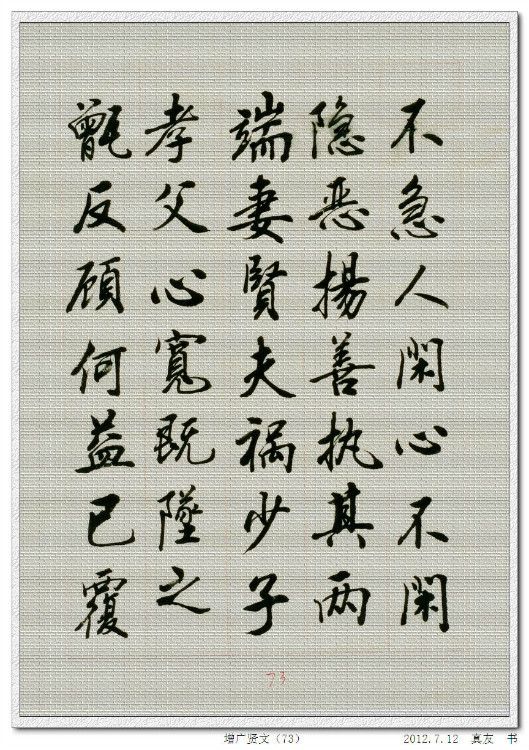 不急人闲心不闲
隐恶揚善执其两
端妻賢夫祸少子
孝父心寬既墜之
甑反顾何益已覆
73
增广贤文（73） 2012.7.12 真友 书